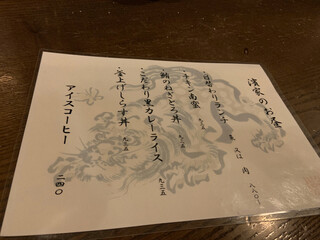 濱家のお昼
・日替わりランチ 魚 又は 肉 八八〇
・チキン南蛮 九三五
・鮪のねぎとろ丼
・こだわり黒カレーライス 九三五
・釜上げしらす丼 九三五
アイスコーヒー 二四〇